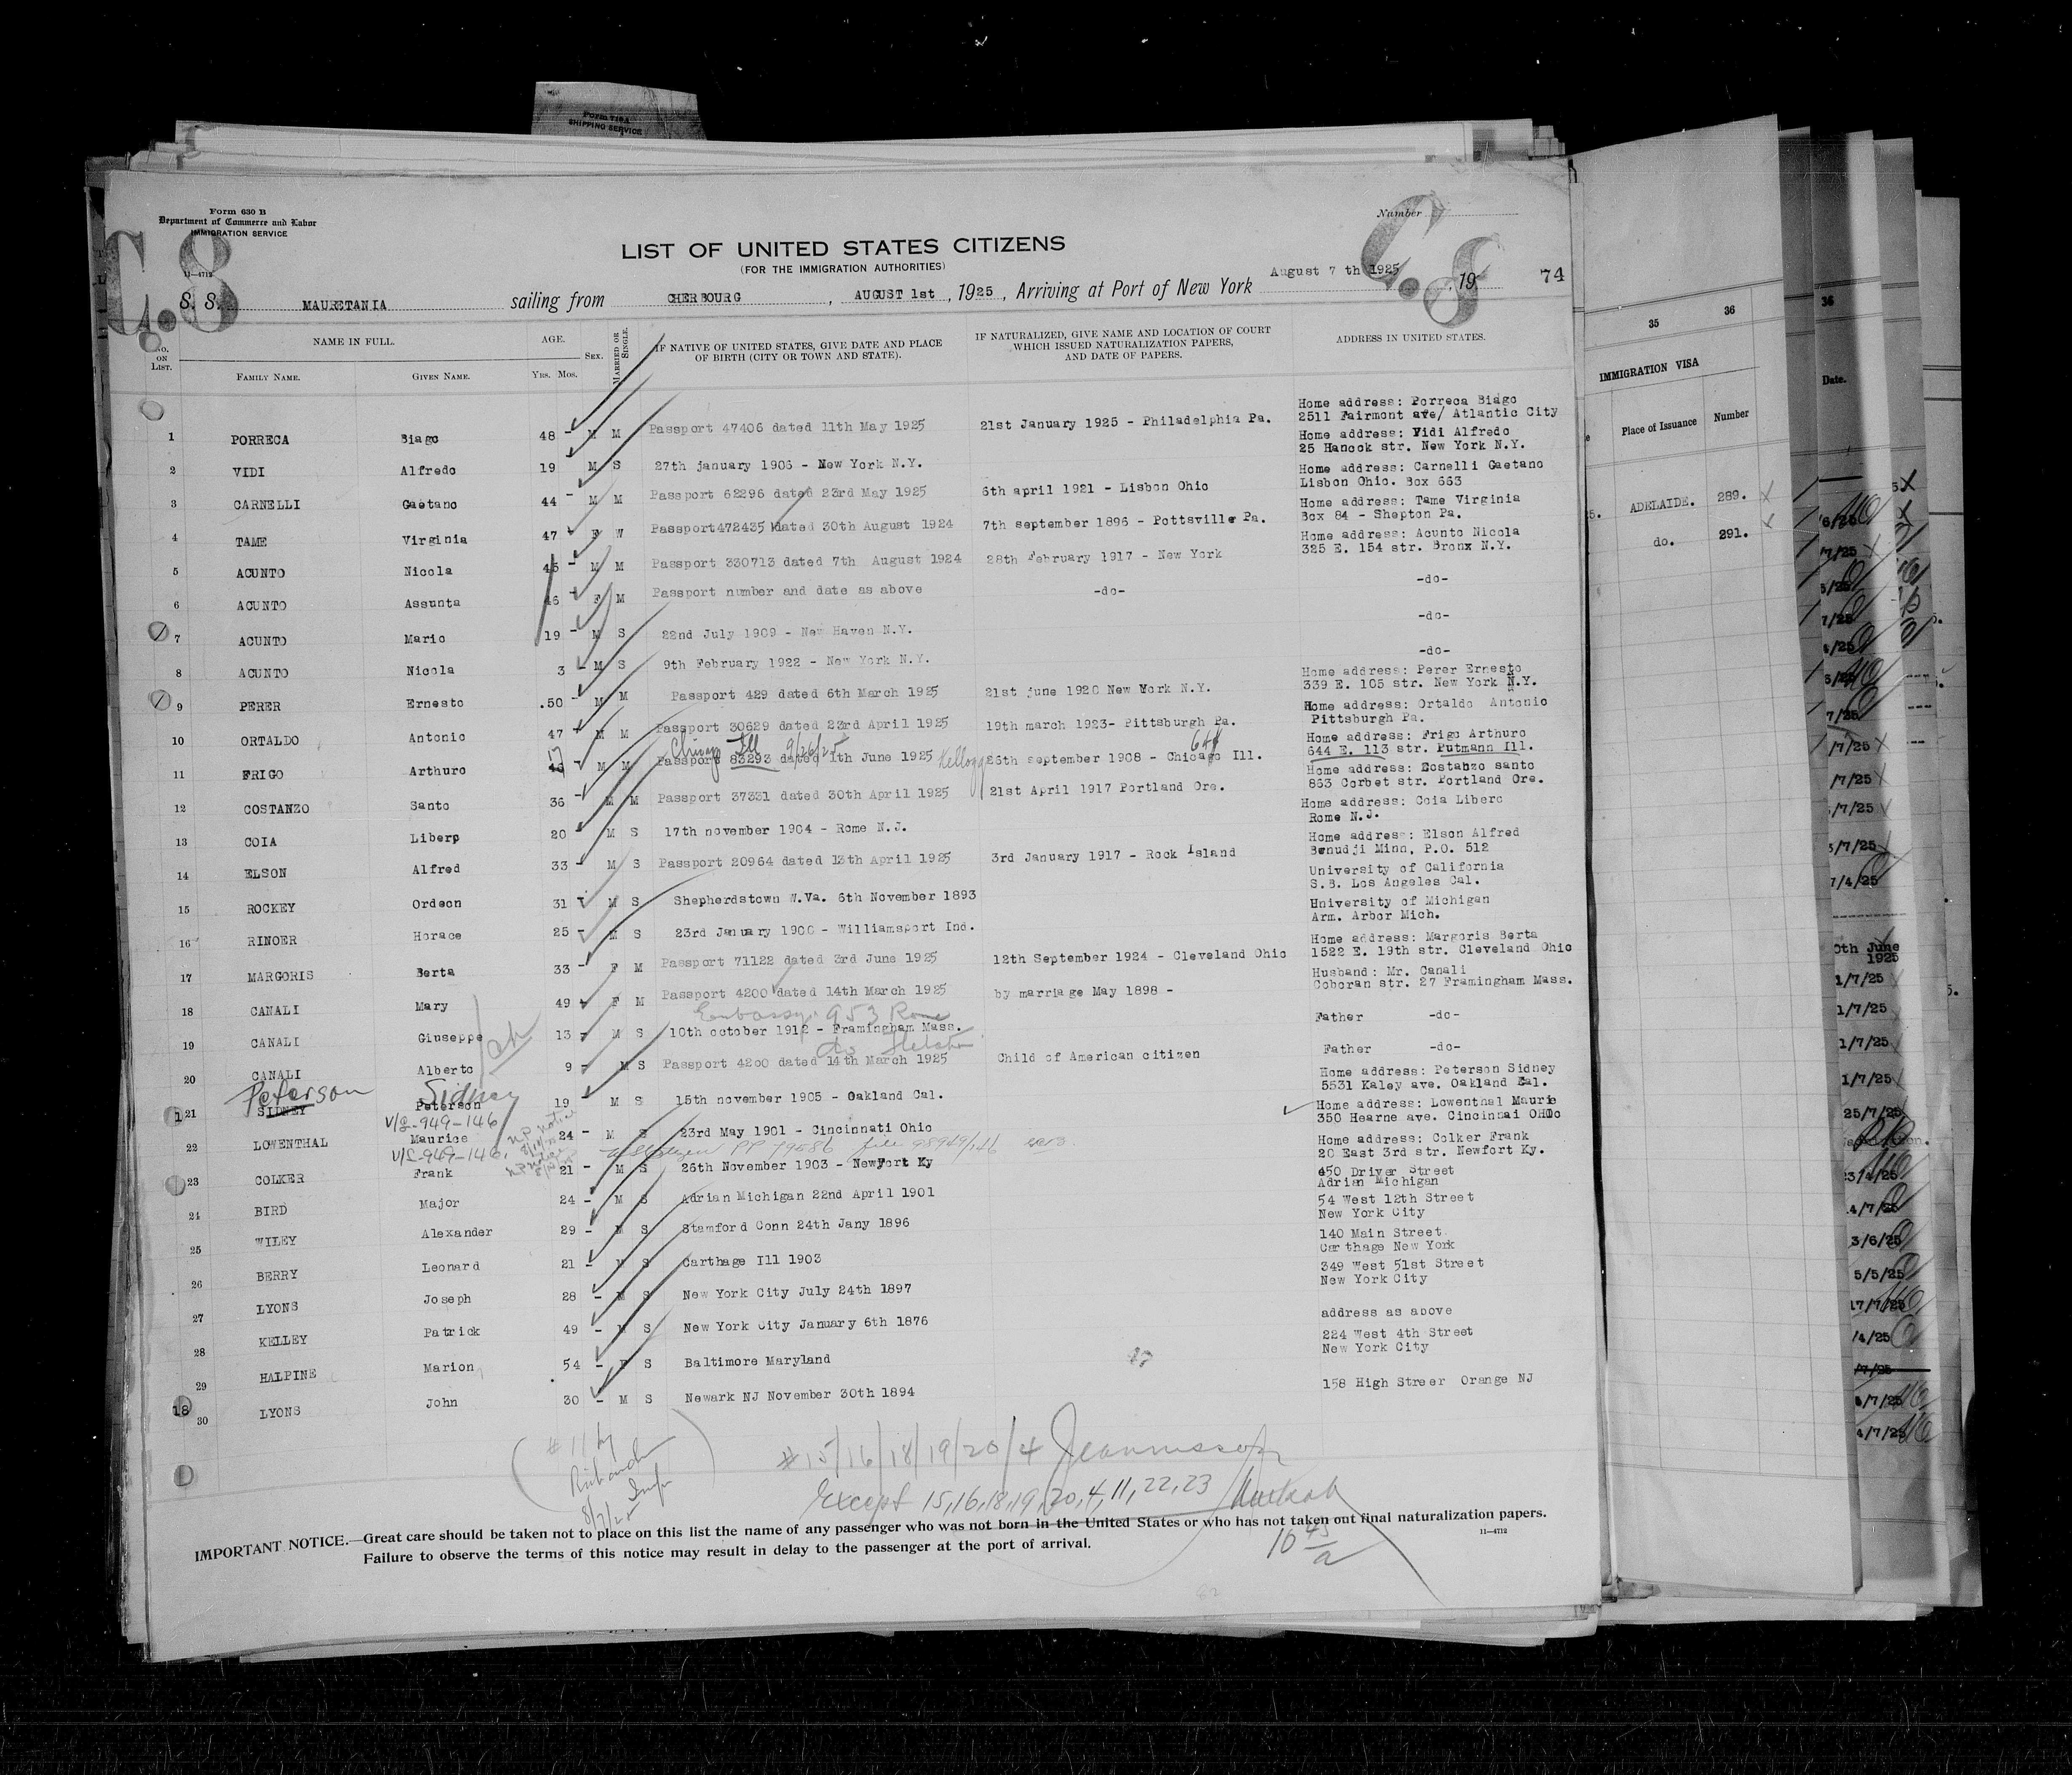 Form 710A
SHIPPING SERVICE
Form 630 B
Department of Commerce and Labor
IMMIGRATION SERVICE
11—4712
C.S
C.S
Number
LIST OF UNITED STATES CITIZENS
(FOR THE IMMIGRATION AUTHORITIES)
S. S. MAURETANIA sailing from CHERBOURG, AUGUST 1st, 1925, Arriving at Port of New York August 7 th 1925, 19 74
No. ON LIST. NAME IN FULL. AGE. SEX. MARRIED OR SINGLE. IF NATIVE OF UNITED STATES, GIVE DATE AND PLACE OF BIRTH (CITY OR TOWN AND STATE). IF NATURALIZED, GIVE NAME AND LOCATION OF COURT WHICH ISSUED NATURALIZATION PAPERS, AND DATE OF PAPERS. ADDRESS IN UNITED STATES.
FAMILY NAME. GIVEN NAME. YRS. MOS.
1 PORRECA Biago 48 - M M Passport 47406 dated 11th May 1925 21st January 1925 - Philadelphia Pa. Home address: Porreca Biago
2511 Fairmont ave/ Atlantic City
2 VIDI Alfredo 19 M S 27th january 1906 - New York N.Y. Home address: Vidi Alfredo
25 Hancok str. New York N.Y.
3 CARNELLI Gaetano 44 - M M Passport 62296 dated 23rd May 1925 6th april 1921 - Lisbon Ohio Home address: Carnelli Gaetano
Lisbon Ohio. Box 663
4 TAME Virginia 47 F W Passport472435 dated 30th August 1924 7th september 1896 - Pottsville Pa. Home address: Tame Virginia
Box 84 - Shepton Pa.
5 ACUNTO Nicola 45 - M M Passport 330713 dated 7th August 1924 28th February 1917 - New York Home address: Acunto Nicola
325 E. 154 str. Bronx N.Y.
6 ACUNTO Assunta 46 F M Passport number and date as above -do- -do-
7 ACUNTO Mario 19 - M S 22nd July 1909 - New Haven N.Y. -do-
8 ACUNTO Nicola 3 - M S 9th February 1922 - New York N.Y. -do-
9 PERER Ernesto .50 - M M Passport 429 dated 6th March 1925 21st june 1920 New York N.Y. Home address: Perer Ernesto
339 E. 105 str. New York N.Y.
10 ORTALDO Antonio 47 - M M Passport 30629 dated 23rd April 1925 19th march 1923- Pittsburgh Pa. Home address: Ortaldo Antonio
Pittsburgh Pa.
Chicago Ill 9/26/25
11 FRIGO Arthuro M M Passport 83293 dated 1th June 1925 Kellogg 26th september 1908 - Chicago Ill. Home address: Frigo Arthuro
644 E. 113 str. Putmann Ill.
12 COSTANZO Santo 36 - M M Passport 37331 dated 30th April 1925 21st April 1917 Portland Ore. Home address: Eostanzo santo
863 Corbet str. Portland Ore.
13 COIA Liberp 20 - M S 17th november 1904 - Rome N.J. Home address: Coia Libero
Rome N.J.
14 ELSON Alfred 33 - M S Passport 20964 dated 13th April 1925 3rd January 1917 - Rock Island Home address: Elson Alfred
Benudji Minn, P.O. 512
15 ROCKEY Ordeon 31 M S Shepherdstown W.Va. 6th November 1893 University of California
S.B. Los Angeles Cal.
16 RINOER Horace 25 - M S 23rd January 1900 - Williamsport Ind. University of Michigan
Arm. Arbor Mich.
17 MARGORIS Berta 33 - F M Passport 71122 dated 3rd June 1925 12th September 1924 - Cleveland Ohio Home address: Margoris Berta
1522 E. 19th str. Cleveland Ohio
18 CANALI Mary 49 F M Passport 4200 dated 14th March 1925 by marriage May 1898 - Husband: Mr. Canali
Coboran str. 27 Framingham Mass.
Embassy 953 Rome
19 CANALI Giuseppe 13 M S 10th october 1912 - Framingham Mass. Father -do-
do
20 CANALI Alberto 9 - M S Passport 4200 dated 14th March 1925 Child of American citizen Father -do-
Peterson Sidney
21 SIDNEY Peterson 19 M S 15th november 1905 - Oakland Cal. Home address: Peterson Sidney
5531 Kaley ave. Oakland Cal.
V/L-949-146
22 LOWENTHAL Maurice 24 - M S 23rd May 1901 - Cincinnati Ohio Home address: Lowenthal Maurie
350 Hearne ave. Cincinnai OHIo
V/L-949-146. US Citizen PP 79586 file 98949/146
23 COLKER Frank 21 - M S 26th November 1903 - Newfort Ky Home address: Colker Frank
20 East 3rd str. Newfort Ky.
24 BIRD Major 24 - M S Adrian Michigan 22nd April 1901 450 Driver Street
Adrian Michigan
25 WILEY Alexander 29 - M S Stamford Conn 24th Jany 1896 54 West 12th Street
New York City
26 BERRY Leonard 21 - M S Carthage Ill 1903 140 Main Street.
Carthage New York
27 LYONS Joseph 28 - M S New York City July 24th 1897 349 West 51st Street
New York City
28 KELLEY Patrick 49 - M S New York City January 6th 1876 address as above
29 HALPINE Marion 54 - F S Baltimore Maryland 224 West 4th Street
New York City
30 LYONS John 30 - M S Newark NJ November 30th 1894 158 High Streer Orange NJ
18
# 11 by
8/7/25
#15/16/18/19/20/4
Except 15,16,18,19,20,4,11,22,23
10 45/a
IMPORTANT NOTICE.—Great care should be taken not to place on this list the name of any passenger who was not born in the United States or who has not taken out final naturalization papers.
Failure to observe the terms of this notice may result in delay to the passenger at the port of arrival.
11—4712
35 36
IMMIGRATION VISA
Place of Issuance Number
ADELAIDE. 289.
do. 291.
36
Date.
0th June
1925
1/7/25
1/7/25
1/7/25
1/7/25
25/7/25
23/4/25
4/7/25
3/6/25
5/5/25
17/7/25
/4/25
/7/25
4/7/25